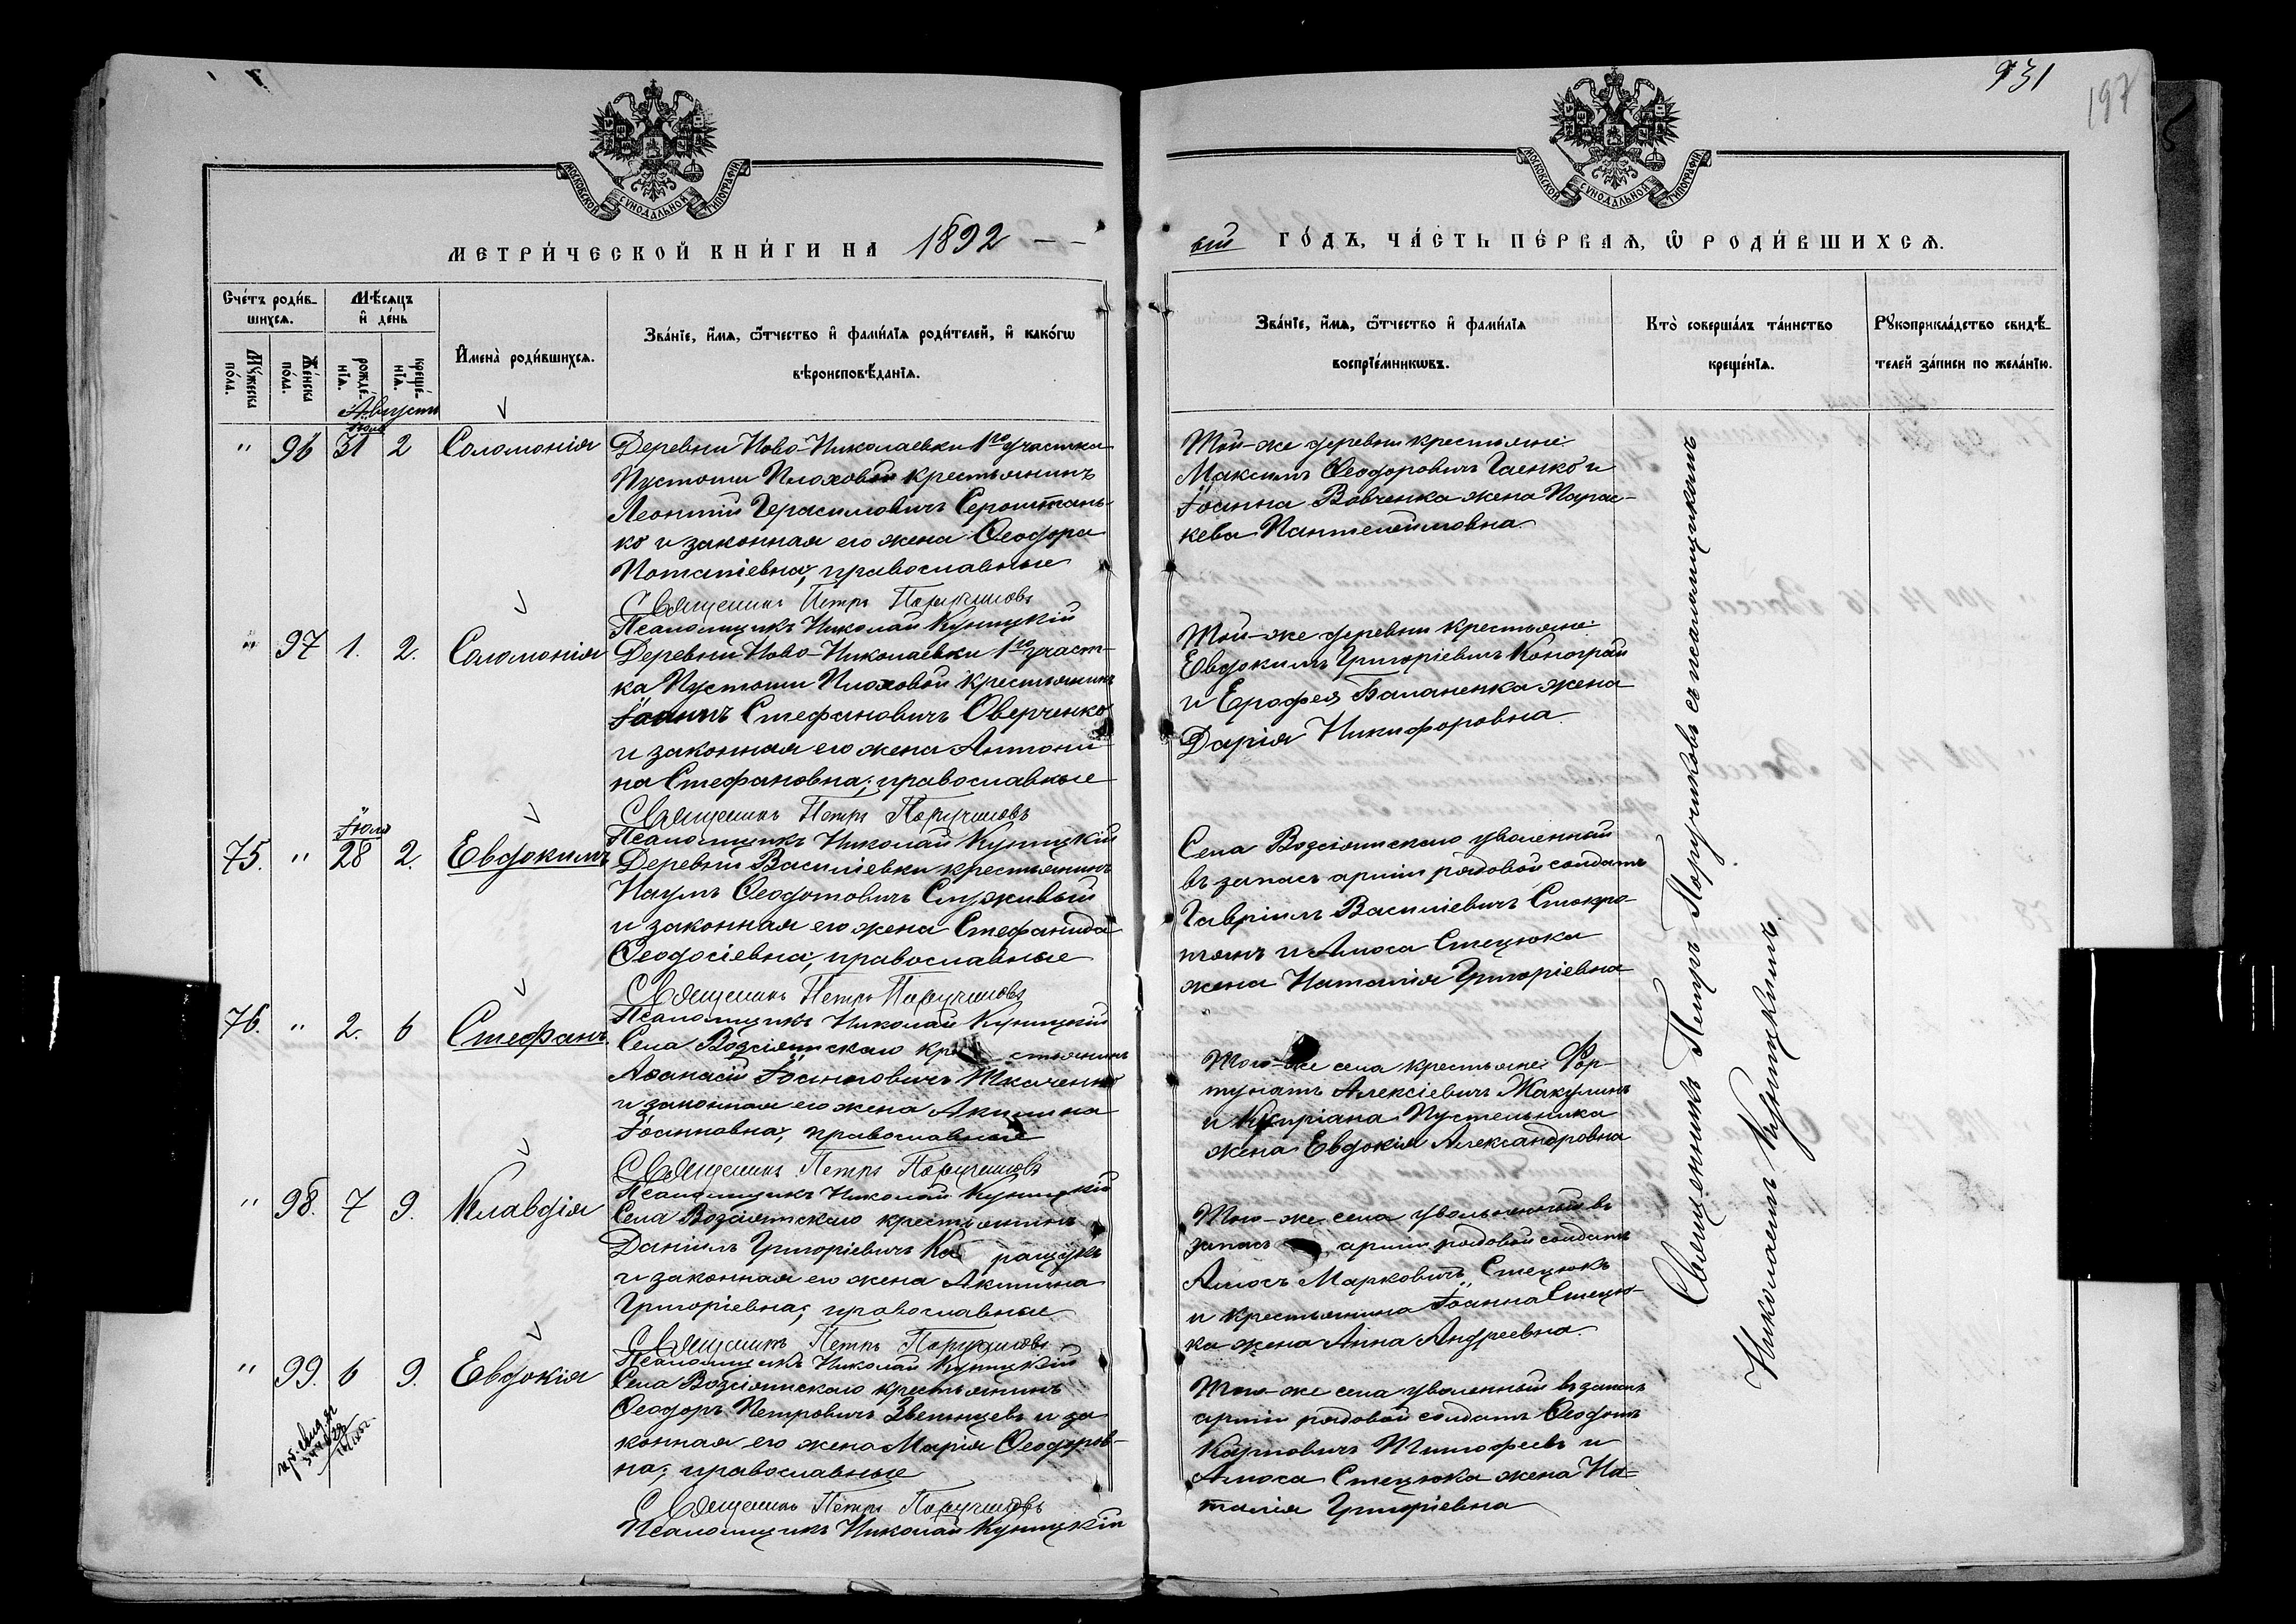 931
197
МОСКОВСКОЙ СУНОДАЛЬНОЙ ТИПОГРАФІИ
МОСКОВСКОЙ СУНОДАЛЬНОЙ ТИПОГРАФІИ
МЕТРИ́ЧЕСКОЙ КНИ́ГИ НА 1892
ый ГО́ДЪ, ЧА́СТЬ ПЕ́РВАЯ, Ѡ РОДИ́ВШИХСЯ.
Сче́тъ роди́в-
шихся.
Мѣ́сяцъ
и де́нь
Му́жеска
по́ла.
Же́нска
по́ла.
рожде́-
нїя.
креще́-
нїя.
И҆мена̀ роди́вшихся.
Зва́нїе, и҆́мя, ѻ҆́тчество и҆ фами́лїя роди́телей, и҆ како́гѡ
вѣроисповѣ́данїя.
Зва́нїе, и҆́мя, ѻ҆́тчество и҆ фами́лїя
воспрїе́мникѡвъ.
Кто̀ соверша́лъ та́инство
креще́нїя.
Рꙋкоприкла́дство свидѣ́-
телей за́писи по жела́нїю.
Августъ
" 96 Іюля 31 2 Соломонія
Деревни Ново-Николаевки 1го участка
Пустоши Плоховой крестьянинъ
Леонтій Герасимовичъ Сероштань-
ко и законная его жена Ѳеодора
Потапіевна; православные
Священникъ Петръ Поручиковъ
Псаломщикъ Николай Куницкій
Той-же деревни крестьяне:
Максимъ Ѳеодоровичъ Гаенко и
Іоанна Вовченка жена Парас-
кева Пантелеимовна
" 97 1. 2. Соломонія
Деревни Ново-Николаевки 1го участ-
ка Пустоши Плоховой крестьянинъ
Іоаннъ Стефановичъ Оверченко
и законная его жена Антони-
на Стефановна; православные
Священникъ Петръ Поручиковъ
Псаломщикъ Николай Куницкій
Той-же деревни крестьяне:
Евдокимъ Григоріевичъ Коноград
и Ерофея Баланенка жена
Дарія Никифоровна
75. " Іюля 28 2. Евдокимъ
Деревни Василіевки крестьянинъ
Наумъ Ѳеодотовичъ Служивый
и законная его жена Стефанида
Ѳеодосіевна; православные
Священникъ Петръ Поручиковъ
Псаломщикъ Николай Куницкій
Села Возсіятскаго уволенный
въ запасъ арміи рядовой солдатъ
Гавріилъ Василіевичъ
и Амоса Стецюка
жена Наталія Григоріевна
76. " 2. 6 Стефанъ.
Села Возсіятскаго крестьянинъ
Аѳанасій Іоанновичъ Ткаченко
и законная его жена Акилина
Іоанновна; православные
Священникъ Петръ Поручиковъ
Псаломщикъ Николай Куницкій
Того-же села крестьяне: Фор-
тунатъ Алексіевичъ Жакулинъ
и Кипріана Пустельника
жена Евдокія Александровна
" 98. 7 9. Клавдія
Села Возсіятскаго крестьянинъ
Даніилъ Григоріевичъ
и законная его жена Акилина
Григоріевна; православные
Священникъ Петръ Поручиковъ
Псаломщикъ Николай Куницкій
Того-же села увольненный въ
запасъ арміи рядовой солдатъ
Амосъ Марковичъ Стецюкъ
и крестьянина Іоанна Стецю-
ка жена Анна Андреевна.
" 99. 6 9. Евдокія
Села Возсіятскаго крестьянинъ
Ѳеодоръ Петровичъ Звенцевъ и за
конная его жена Марія Ѳеодоров-
на; православные
Священникъ Петръ Поручиковъ
Псаломщикъ Николай Куницкій
Того-же села уволенный въ запасъ
арміи рядовой солдатъ Ѳеодотъ
Карповичъ Тимофеевъ и
Амоса Стецюка жена На-
талія Григоріевна
Священникъ Петръ Поручиковъ съ псаломщикомъ
Николаемъ Куницкимъ.